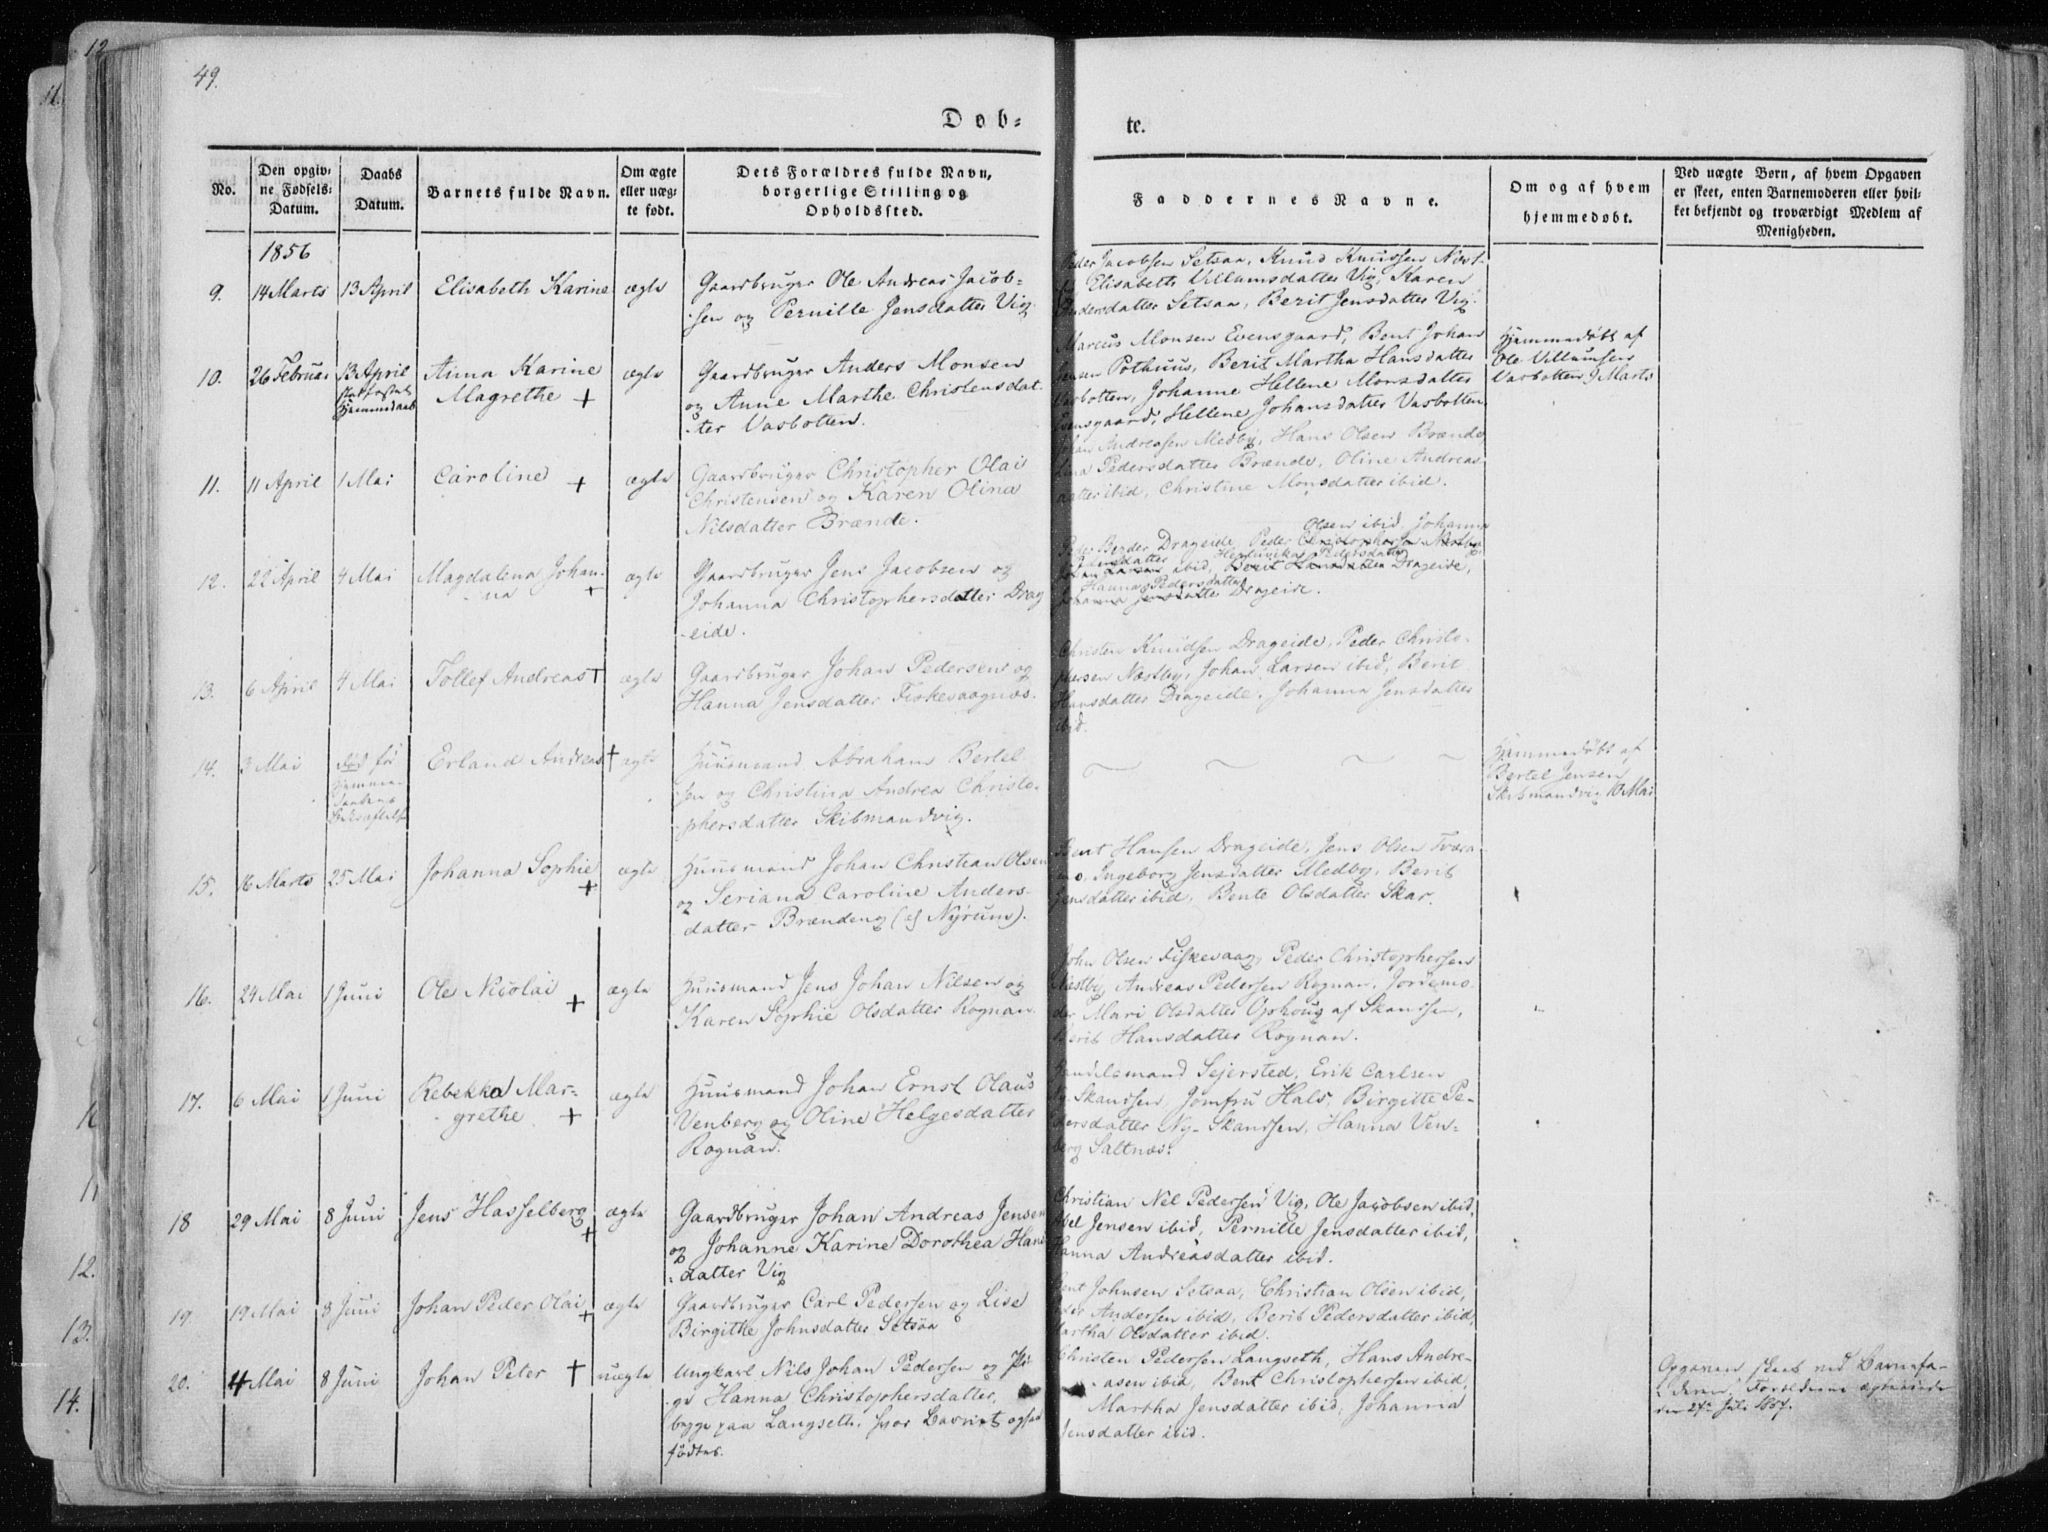 49.
Døb-
te.
No.
Den opgiv-
ne Fødsels-
Datum.
Daabs
Datum.
Barnets fulde Navn.
Om ægte
eller uæg-
te født.
Dets Forældres fulde Navn,
borgerlige Stilling og
Opholdssted.
Faddernes Navne.
Om og af hvem
hjemmedøbt.
Ved uægte Børn, af hvem Opgaven
er skeet, enten Barnemoderen eller hvil-
ket bekjendt og troværdigt Medlem af
Menigheden.
1856
9. 14 Marts 13 April Elisabeth Karine ægte
Gaardbruger Ole Andreas Jacob-
sen og Pernille Jensdatter Vig
Peder Jacobsen Setsaa, Knud Knudsen
Elisabeth Villumsdatter Vig, Karen
Andersdatter Setsaa, Berit Jensdatter Vig.
10. 26 Februar 13 April
Hjemmedaab
Anna Karine
Magrethe +
ægte
Gaardbruger Anders Monsen
og Anne Marthe Christensdat-
ter Vasbotten.
Marcus Monsen Evensgaard, Bent Johan
Jensen Pothuus, Berit Martha Hansdatter
Vasbotten, Johanne Hellene Monsdatter
Evensgaard, Hellene Johansdatter Vasbotten
Hjemmedøbt af
Ole Villumsen
Vasbotten 9 Marts
11. 11 April 1 Mai Caroline + ægte
Gaardbruger Christopher Olai
Christensen og Karen Olina
Nilsdatter Brænde.
Johan Andreasen Medby, Hans Olsen Brænde,
Lina Pedersdatter Brænde, Oline Andreas-
datter ibid, Christine Monsdatter ibid.
12. 22 April 4 Mai Magdalena Johan-
na +
ægte
Gaardbruger Jens Jacobsen og
Johanna Christophersdatter Drag-
eide.
Olsen ibid, Johanna
Peder Bender Drageide, Peder Christophersen Næstby
Jensdatter Hendrikka Pedersdatter
Johan Larsen ibid, Berit Hansdatter Drageide,
Hanna Pedersdatter
Johanna Jensdatter Drageide.
13. 6 April 4 Mai Tollef Andreas + ægte
Gaardbruger Johan Pedersen og
Hanna Jensdatter Fiskevaagnæs.
Christen Knudsen Drageide, Peder Christo-
phersen Næstby, Johan Larsen ibid, Berit
Hansdatter Drageide, Johanna Jensdatter
ibid.
14. 3 Mai
død før
Erland Andreas + ægte
Huusmand Abraham Bertel-
sen og Christina Andrea Christo-
phersdatter Skibmandvig.
Hjemmedøbt af
Bertel Jensen
Skibmandvig 10 Mai
15. 16 Marts 25 Mai Johanna Sophie + ægte
Huusmand Johan Christian Olsen
og Seriana Caroline Anders-
datter Brændeng (af Nyrum).
Bent Hansen Drageide, Jens Olsen Tværa-
mo, Ingeborg Jensdatter Medby, Berit
Jensdatter ibid, Bente Olsdatter Skar.
16. 24 Mai 1 Juni Ole Nicolai + ægte
Huusmand Jens Johan Nilsen og
Karen Sophie Olsdatter Rognan
John Olsen Fiskevaag, Peder Christophersen
Næstby, Andreas Pedersen Rognan, Jordemo-
der Mari Olsdatter Ophoug af Skandsen,
Berit Hansdatter Rognan.
17. 6 Mai 1 Juni Rebekka Mar-
grethe +
ægte
Huusmand Johan Ernst Olaus
Venberg og Oline Helgesdatter
Rognan.
Handelsmand Sejersted, Erik Carlsen
Ny-Skandsen, Jomfru Hals, Birgitte Pe-
dersdatter Ny-Skandsen, Hanna Ven-
berg Saltnæs.
18 29 Mai 8 Juni Jens Hasselberg + ægte
Gaardbruger Johan Andreas Jensen
og Johanne Karine Dorothea Hans-
datter Vig
Christian Nel Pedersen Vig, Ole Jacobsen ibid,
Abel Jensen ibid, Pernille Jensdatter ibid,
Hanna Andreasdatter ibid.
19. 19 Mai 8 Juni Johan Peder Olai + ægte
Gaardbruger Carl Pedersen og Lise
Birgithe Johnsdatter Setsaa
Bent Johnsen Setsaa, Christian Olsen ibid,
Peder Andersen ibid, Berit Pedersdatter ibid,
Martha Olsdatter ibid.
20. 4 Mai 8 Juni Johan Peter + uægte
Ungkarl Nils Johan Pedersen og Pi-
ge Hanna Christophersdatter,
begge paa Langseth, hvor Barnet ogsaa
fødtes.
Christen Pedersen Langseth, Hans Andre-
asen ibid, Bent Christophersen ibid,
Martha Jensdatter ibid, Johanna
Jensdatter ibid.
Opgaven skeet ved Barnefa-
deren, Forældrene ægteviede
den 27de Juli 1857.
12
11.
10
11
12.
13.
14.